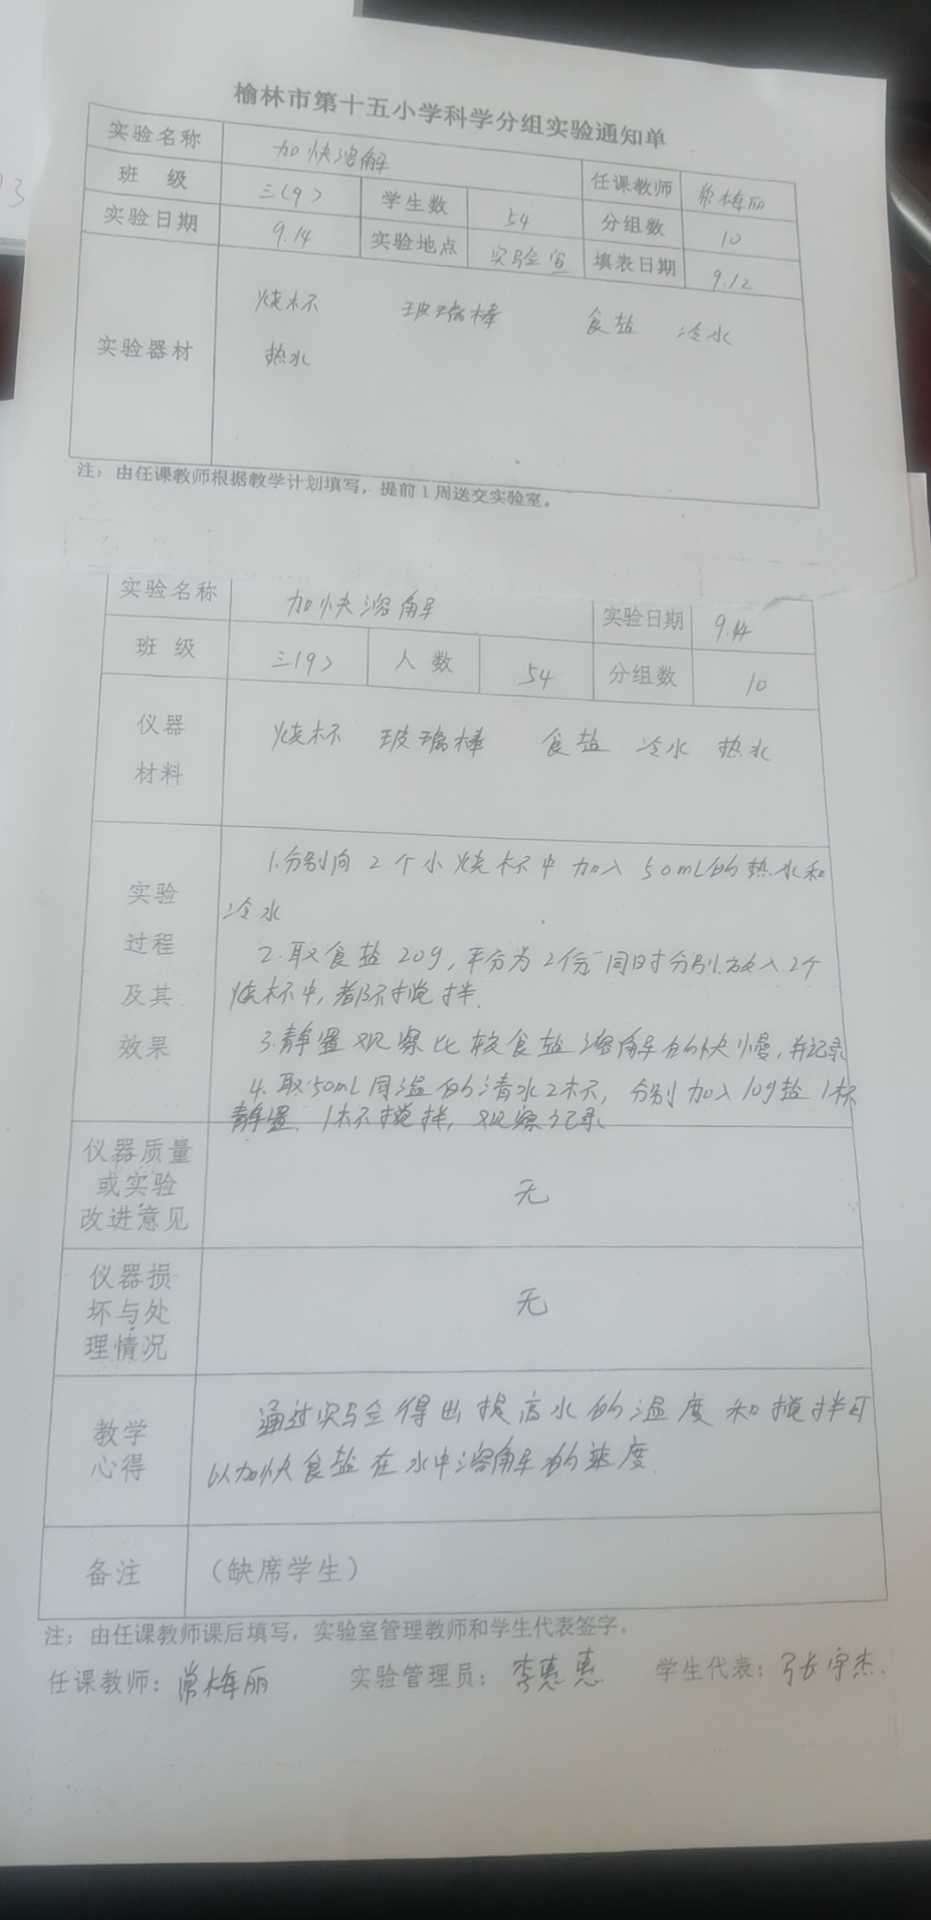 榆林市第十五小学科学分组实验通知单
实验名称 加快溶解 任课教师 常梅丽
班 级 三(9) 学生数 54 分组数 10
实验日期 9.14 实验地点 实验室 填表日期 9.12
烧杯 玻璃棒 食盐 冷水
实验器材 热水
注：由任课教师根据教学计划填写，提前1周送交实验室。
实验名称 加快溶解 实验日期 9.14
班 级 三(9) 人 数 54 分组数 10
仪器
材料
烧杯 玻璃棒 食盐 冷水 热水
实验
过程
及其
效果
1.分别向2个小烧杯中加入50mL的热水和
冷水
2.取食盐20g，平分为2份同时分别放入2个
烧杯中，都不搅拌.
3.静置观察比较食盐溶解的快慢，并记录
4.取50mL同温的清水2杯，分别加入10g盐1杯
静置、1杯搅拌，观察记录
仪器质量
或实验
改进意见
无
仪器损
坏与处
理情况
无
教学
心得
通过实验得出提高水的温度和搅拌可
以加快食盐在水中溶解的速度.
备注 （缺席学生）
注：由任课教师课后填写，实验室管理教师和学生代表签字。
任课教师：常梅丽 实验管理员：李惠惠 学生代表：张宇杰.